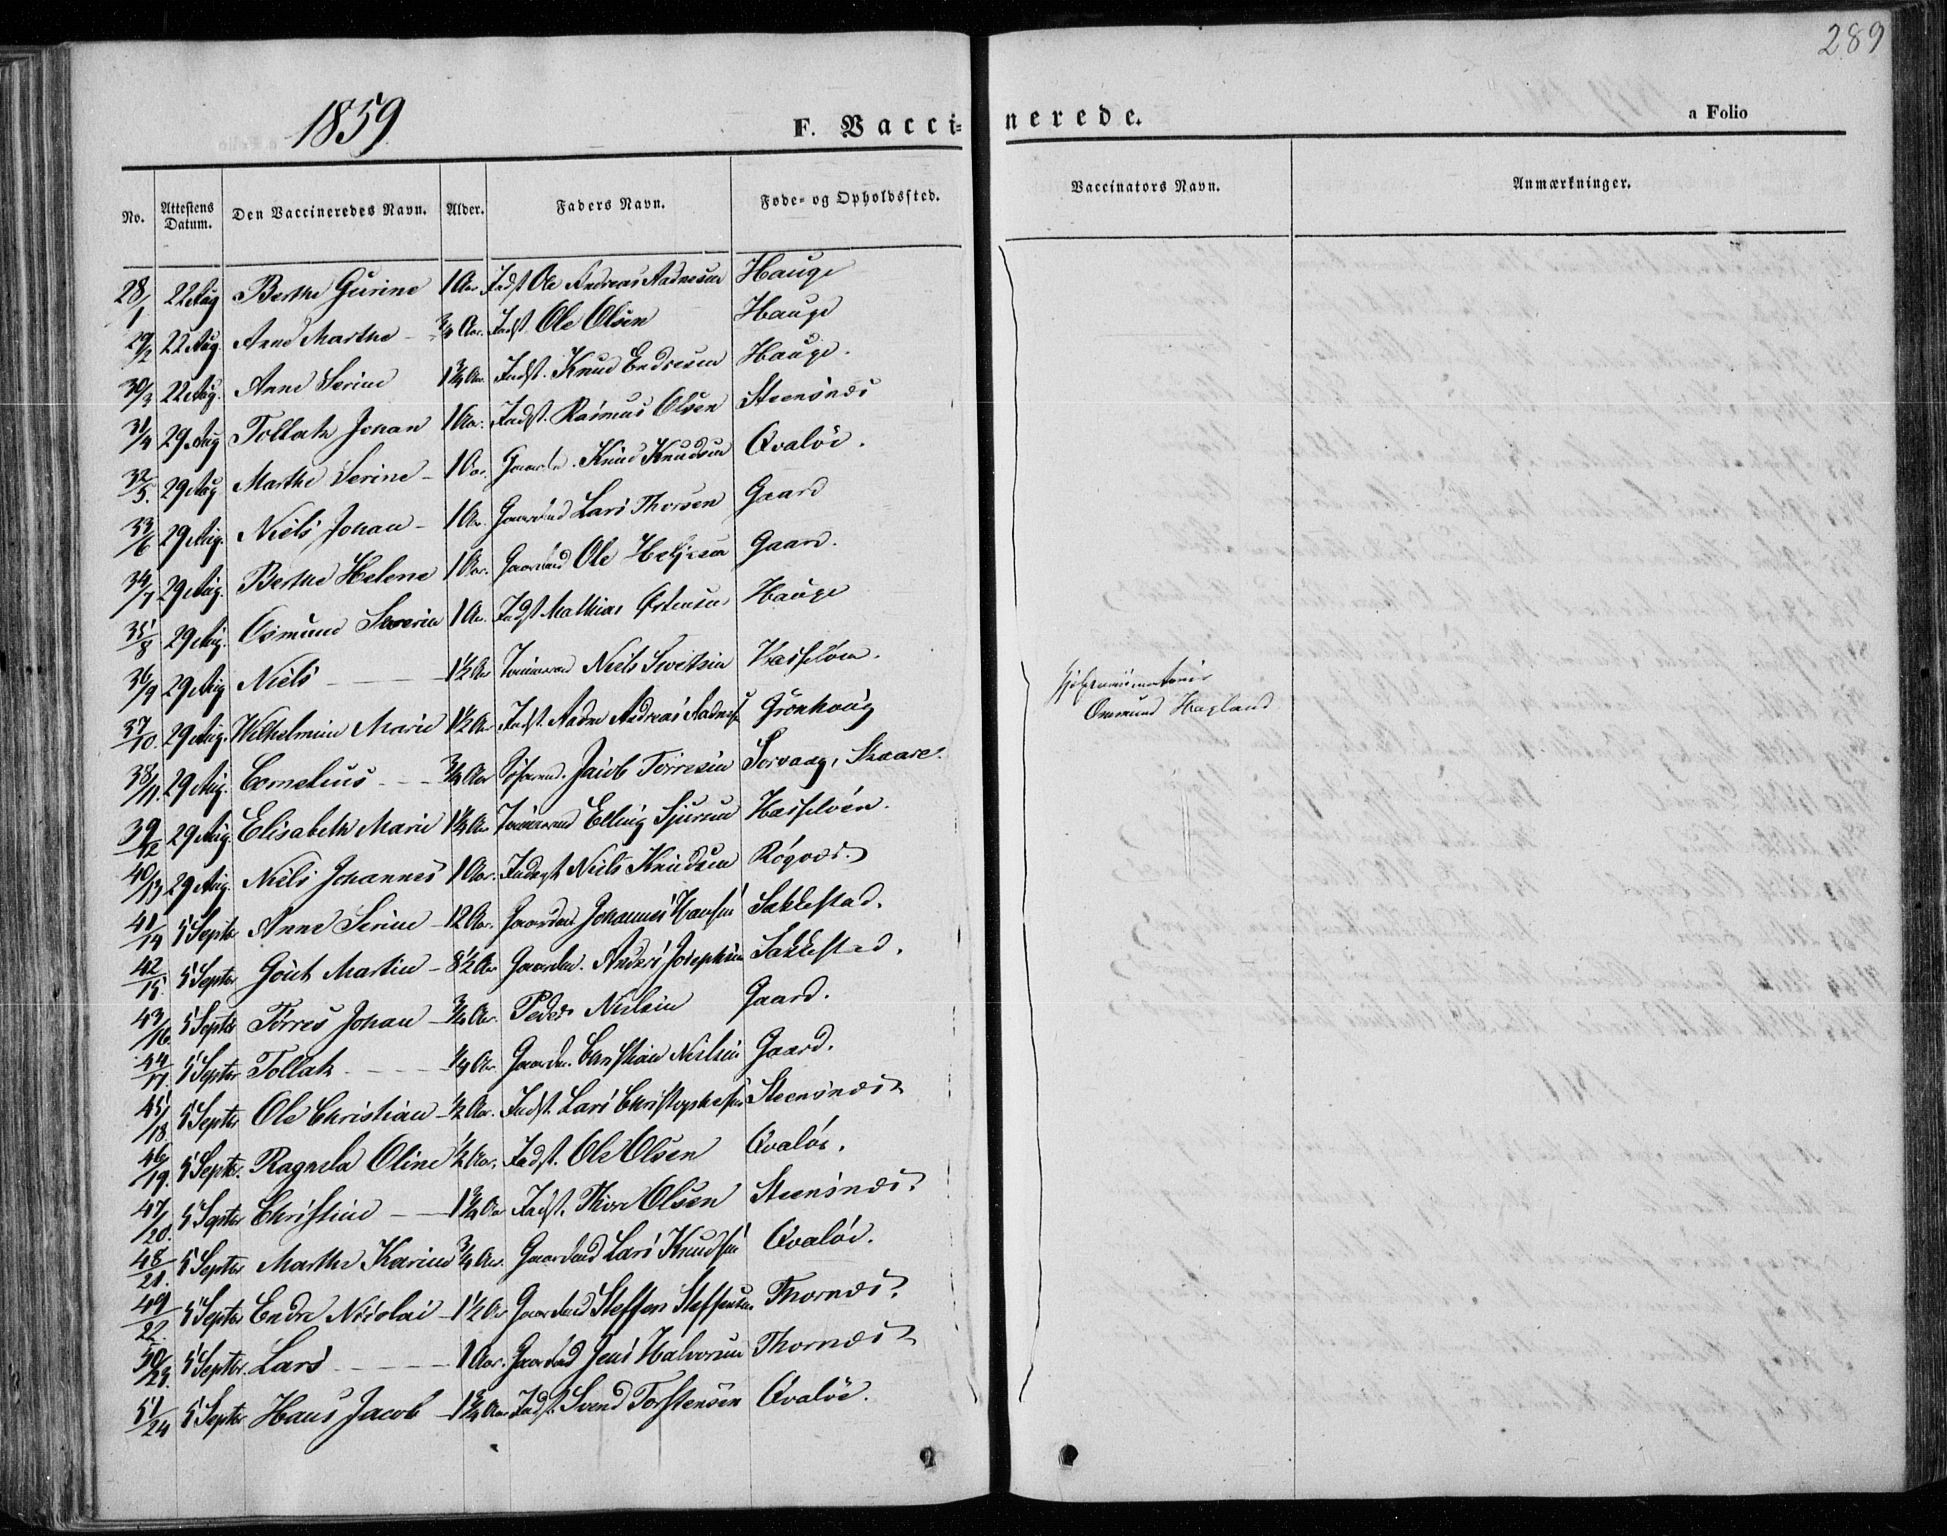 289
1859
F. Vaccinerede.
a Folio
No. Attestens Datum. Den Vaccineredes Navn. Alder. Faders Navn. Føde- og Opholdssted. Vaccinators Navn. Anmærkninger.
28/1 22 Aug Berthe Gurine 1 Aar Indst Ole Andreas Aadnesen Hauge
29/2 22 Aug. Anne Marthe - 3/4 Aar. Indst. Ole Olsen Hauge
30/3 22 Aug. Anne Serine Aar. Indst. Knud Endresen Hauge.
31/4 29 Aug Tollak Johan 1 Aar. Indst. Rasmus Olsen Steensnæs
32/5. 29 Aug Marthe Serine - 1 Aar. Knud Knudsen Qvaløe.
33/6 29 Aug. Niels Johan - 1 Aar. Lars Thorsen Gaard
34/7 29 Aug. Berthe Helene 1 Aar. Ole Helgesen Gaard.
35/8 29 Aug. Osmund Severin 1 Aar. Indst Mathias Østensen Hauge
36/9 29 Aug Niels - 1 1/2 Aar Niels
37/10. 29 Aug. Wilhelmine Marie 1 1/2 Aar Indst. Aadne Andreas Aadnes Grønhoug
38/11. 29 Aug. Cornelius - - - 3/4 Aar Jacob Tørresen Sorvaag, Skaare.
39/12 29 Aug. Elisabeth Marie Aar Elling Sjursen Hasseløen.
40/13. 29 Aug. Niels Johannes 1 Aar. Niels Knudsen Røgvær.
41/14 5 Septbr Anne Serine - 12 Aar. Johannes Hansen Sakkestad.
42/15. 5 Septbr Gout Martin - 8 1/2 Aar Anders Josephsen Sakkestad.
43/16. 5 Septbr Tørres Johan - 3/4 Aar. Peder Nielsen Gaard.
44/17. 5 Septbr Tollak - Aar. Christian Nielsen Gaard.
45/18. 5 Septbr Ole Christian - 1/2 Aar. Indst. Lars Christophersen Steensnæs
46/19. 5 Septbr. Ragnela Oline 1/2 Aar. Indst. Ole Olsen Qvaløe.
47/20. 5 Septbr Christine - - 1 3/4 Aar Indst. Thore Olsen Steensnæs.
48/21. 5 Septbr Marthe Karine 3/4 Aar. Lars Knudsen Qvaløe.
49/22. 5 Septbr Endre Nicolai - 1 1/2 Aar Steffen Steffensen Thornæs.
50/23. 5 Septbr. Lars - 1 Aar. Jens Halvorsen Thornæs
51/24 5 Septbr. Hans Jacob - 1 3/4 Aar Indst. Svend Torstensen Qvaløe.
Ommund Hagland